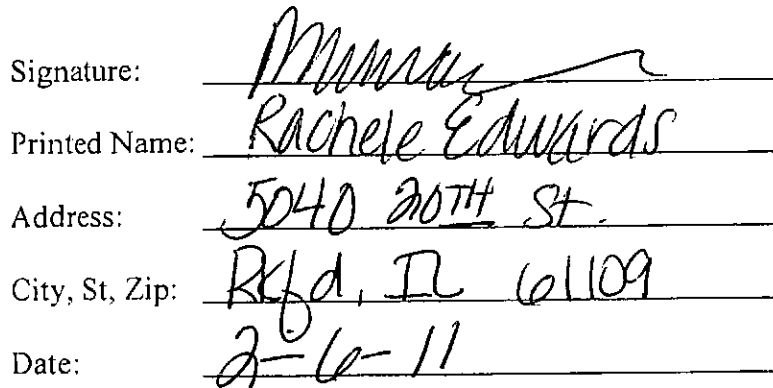 Signature:
Printed Name: Rachele Edwards
Address: 5040 20TH St.
City, St, Zip: Rkfd, IL 61109
Date: 2-6-11